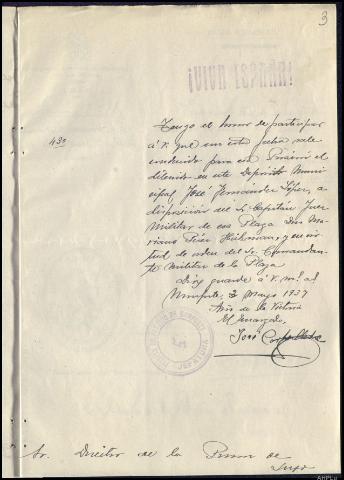 3
¡VIVA ESPAÑA!
430
Tengo el honor de participar
á V. que con esta fecha sale
conducido para esa Prisión el
detenido en este Depósito Munici-
cipal José Fernández López, a
disposición del Sr. Capitán Juez
Militar de esa Plaza Don Ma-
riano y en vir-
tud de orden del Sr. Comandan-
te Militar de la Plaza.
Dios guarde á V. m.s a.s
Monforte, 3 Marzo 1937
Año de la Victoria
El Encargado,
José
JEFATURA
Sr. Director de la Prisión de
Lugo
AHPLu